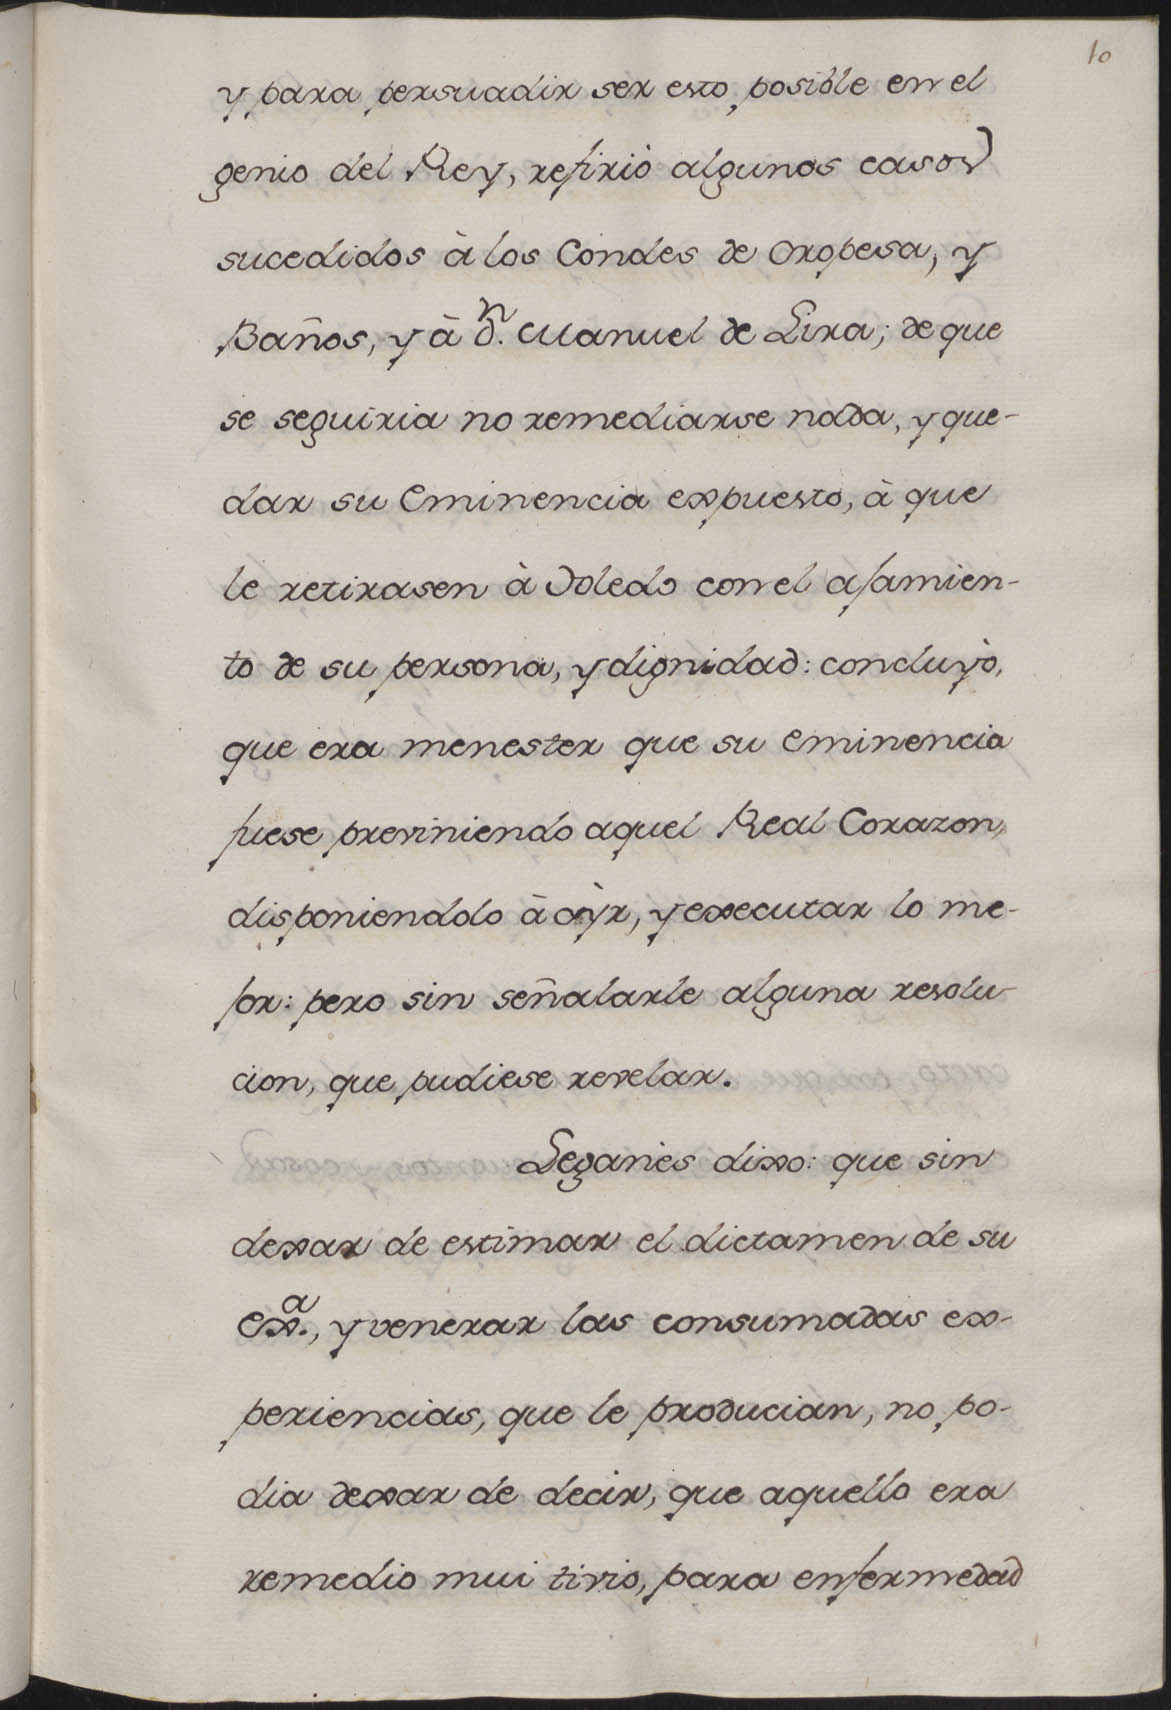 10
y para persuadir ser esto posible en el
genio del Rey, refiriò algunos casos
sucedidos à los Condes de Oropesa, y
Baños, y à Dn. Manuel de Lira; de que
se seguiria no remediarse nada, y que-
dar su Eminencia expuesto, à que
le retirasen à Toledo con el ajamien-
to de su persona, y dignidad: concluyò,
que era menester que su Eminencia
fuese previniendo aquel Real Corazon,
disponiendolo à oỳr, y executar lo me-
jor: pero sin señalarle alguna resolu-
cion, que pudiese revelar.
Leganès dixo: que sin
dexar de estimar el dictamen de su
Exa., y venerar las consumadas ex-
periencias, que le producian, no po-
dia dexar de decir, que aquello era
remedio mui tivio, para enfermedad